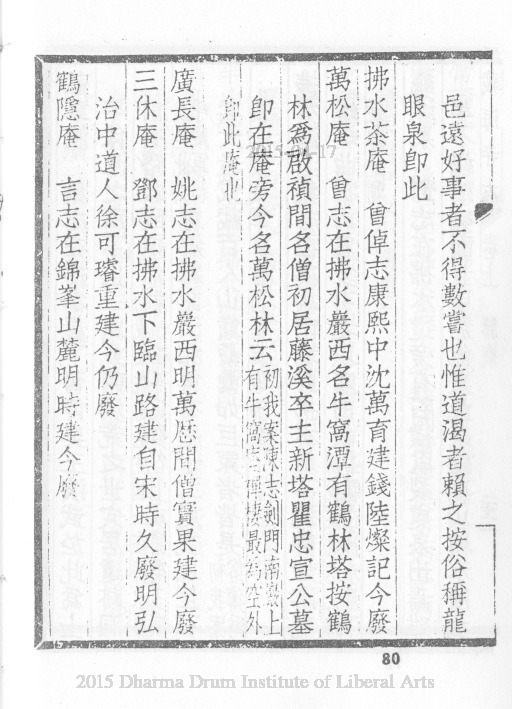 邑遠好事者不得數嘗也惟道渴者賴之按俗稱龍
眼泉卽此
拂水茶庵 曾倬志康熙中沈萬育建錢陸燦記今廢
萬松庵 曾志在拂水巖西名牛窩潭有鶴林塔按鶴
林爲啟禎間名僧初居藤溪卒主新塔瞿忠宣公墓
卽在庵旁今名萬松林云初我案陳志劍門南巖上
有牛窩庵禪棲最為空外
卽此庵也
廣長庵 姚志在拂水巖西明萬厯間僧實果建今廢
三休庵 鄧志在拂水下臨山路建自宋時久廢明弘
治中道人徐可璿重建今仍廢
鶴隱庵 言志在錦峯山麓明時建今廢
80
2015 Dharma Drum Institute of Liberal Arts